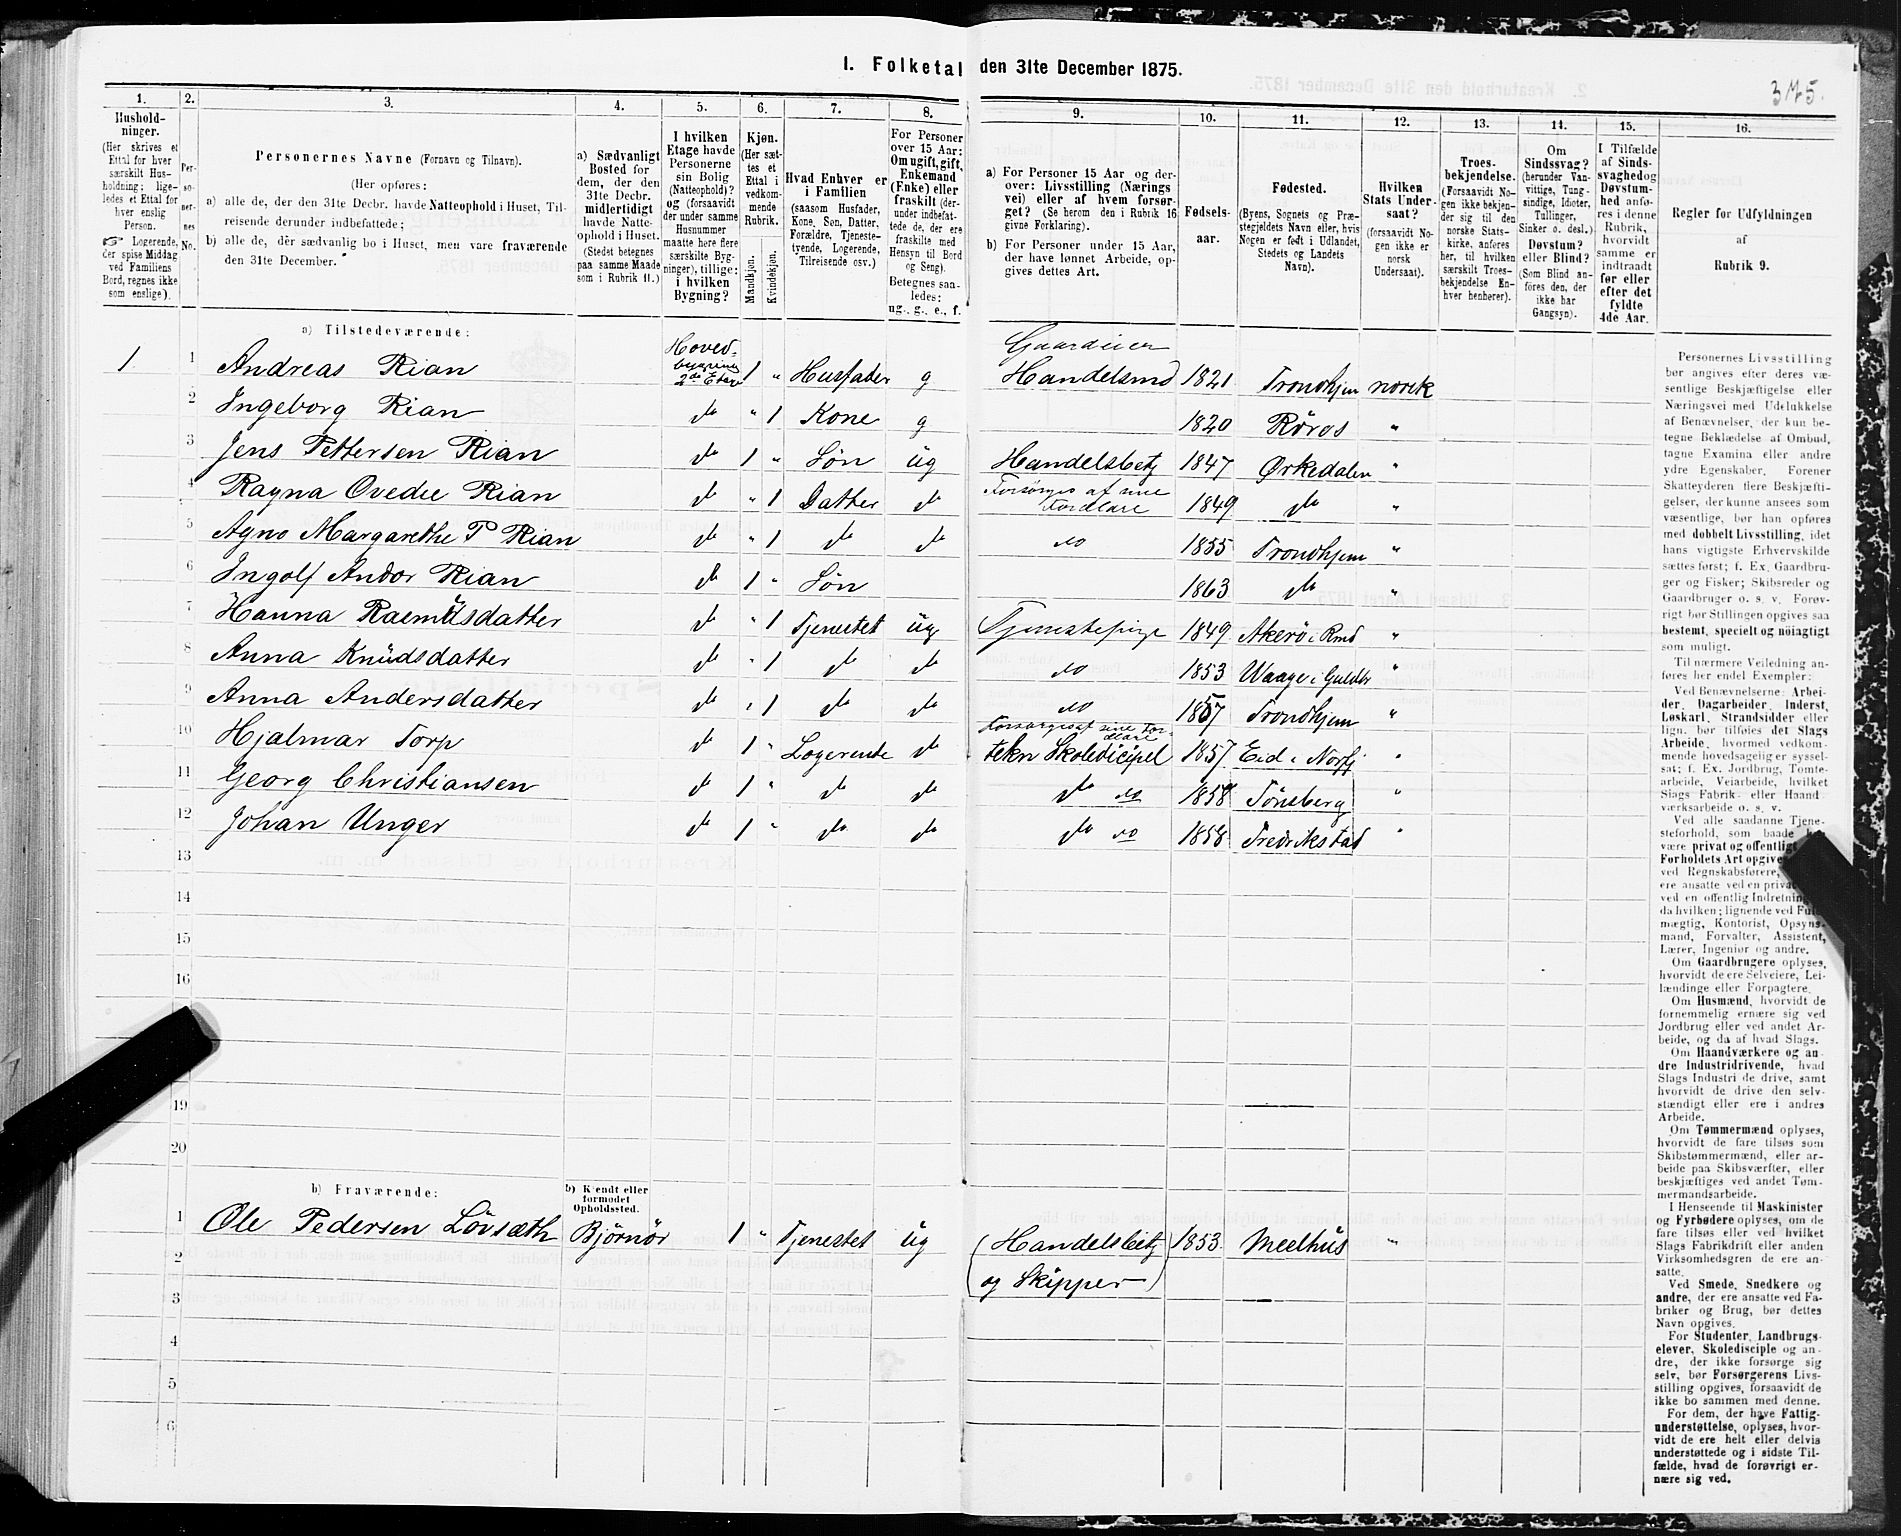 I. Folketal den 31te December 1875.
375.
1. 2. 3. 4. 5. 6. 7. 8. 9. 10. 11. 12. 13. 14. 15. 16.
Hushold-
ninger.
(Her skrives et
Ettal for hver
særskilt Hus-
holdning; lige-
ledes et Ettal for
hver enslig
Person.
☞ Logerende,
der spise Middag
ved Familiens
Bord, regnes ikke
som enslige).
Per-
so-
ner-
nes
No.
Personernes Navne (Fornavn og Tilnavn).
(Her opføres:
a) alle de, der den 31te Decbr. havde Natteophold i Huset, Til-
reisende derunder indbefattede;
b) alle de, der sædvanlig bo i Huset, men vare fraværende
den 31te December.
a) Sædvanligt
Bosted for
dem, der den
31te Decbr.
midlertidigt
havde Natte-
ophold i Huset.
(Stedet betegnes
paa samme Maade
som i Rubrik 11.)
I hvilken
Etage havde
Personerne
sin Bolig
(Natteophold)?
og (forsaavidt
der under samme
Husnummer
maatte høre flere
særskilte Byg-
ninger), tillige:
i hvilken
Bygning?
Kjøn.
(Her sæt-
tes et
Ettal i
vedkom-
mende
Rubrik.
Mandkjøn.
Kvindekjøn.
Hvad Enhver er
i Familien
(saasom Husfader,
Kone, Søn, Datter,
Forældre, Tjeneste-
tyende, Logerende,
Tilreisende osv.)
For Personer
over 15 Aar:
Om ugift, gift,
Enkemand
(Enke) eller
fraskilt (der-
under indbefat-
tede de, der ere
fraskilte med
Hensyn til Bord
og Seng).
Betegnes saa-
ledes:
ug., g., e., f.
a) For Personer 15 Aar og der-
over: Livsstilling (Nærings
vei) eller af hvem forsør-
get? (Se herom den i Rubrik 16
givne Forklaring).
b) For Personer under 15 Aar,
der have lønnet Arbeide, op-
gives dettes Art.
Fødsels-
aar.
Fødested.
(Byens, Sognets og Præ-
stegjeldets Navn eller, hvis
Nogen er født i Udlandet,
Stedets og Landets
Navn).
Hvilken
Stats Under-
saat?
(forsaavidt No-
gen ikke er
norsk
Undersaat).
Troes-
bekjendelse.
(Forsaavidt No-
gen ikke bekjen-
der sig til den
norske Stats-
kirke, anføres
her, til hvilken
særskilt Troes-
bekjendelse En-
hver henhører).
Om
Sindssvag?
(herunder Van-
vittige, Tung-
sindige, Idioter,
Tullinger,
Sinker o. desl.)
Døvstum?
eller Blind?
(Som Blind an-
føres den, der
ikke har
Gangsyn).
I Tilfælde
af Sinds-
svaghed og
Døvstum-
hed anfø-
res i denne
Rubrik,
hvorvidt
samme er
indtraadt
før eller
efter det
fyldte
4de Aar.
Regler for Udfyldningen
af
Rubrik 9.
a) Tilstedeværende:
1 1 Andreas Rian Hoved- 2de Etage 1 " Husfader g Gaardeier Handelsmd 1821 Trondhjem norsk
2 Ingeborg Rian do " 1 Kone g 1820 Røros "
3 Jens Pettersen Rian do 1 " Søn ug Handelsbetj 1847 Ørkedalen "
4 Ragna Ovedie Rian do " 1 Datter do Forsørges af sine Forældre 1849 do "
5 Agno Margarethe P Rian do " 1 do do do 1855 Trondhjem "
6 Ingolf Andor Rian do 1 " Søn 1863 do "
7 Hanna Rasmusdatter do " 1 Tjenestet ug Tjenestepige 1849 Akerö i Rmd "
8 Anna Knudsdatter do " 1 do do do 1853 Waage i Guldbr "
9 Anna Andersdatter do " 1 do do do 1857 Trondhjem "
10 Hjalmar Torp do 1 " Logerende do Forsørges af sine Forældre tekn Skoledicipel 1857 Eid i Nordfj "
11 Georg Christiansen do 1 " do do do do 1858 Tönsberg "
12 Johan Unger do 1 " do do do do 1858 Fredrikstad "
13
14
15
16
19
20
b) Fraværende:
b) Kjendt eller
formodet
Opholdssted.
1 Ole Pedersen Lövsæth Björnör 1 " Tjenestet ug (Handelsbetj 1853 Meelhus "
2 og Skipper)
3
4
5
6
Personernes Livsstilling
bør angives efter deres væ-
sentlige Beskjæftigelse eller
Næringsvei med Udelukkelse
af Benævnelser, der kun be-
tegne Beklædelse af Ombud,
tagne Examina eller andre
ydre Egenskaber. Forener
Skatteyderen flere Beskjæfti-
gelser, der kunne ansees som
væsentlige, bør han opføres
med dobbelt Livsstilling, idet
hans vigtigste Erhvervskilde
sættes først; f. Ex. Gaardbru-
ger og Fisker; Skibsreder og
Gaardbruger o. s. v. Forøv-
rigt bør Stillingen opgives saa
bestemt, specielt og nöiagtigt
som muligt.
Til nærmere Veiledning an-
føres her endel Exempler:
Ved Benævnelserne: Arbei-
der, Dagarbeider, Inderst,
Løskarl, Strandsidder eller
lign. bør tilføies det Slags
Arbeide, hvormed vedkom-
mende hovedsagelig er syssel-
sat; f. Ex. Jordbrug, Tomte-
arbeide, Veiarbeide, hvilket
Slags Fabrik- eller Haand
værksarbeide o. s. v.
Ved alle saadanne Tjene-
steforhold, som baade
være privat og offentlig
Forholdets Art opgives
ved Regnskabsførere,
ere ansatte ved en privat
ved en offentlig Indretning
da hvilken; lignende ved Fuld-
mægtig, Kontorist, Opsyns-
mand, Forvalter, Assistent,
Lærer, Ingeniør og andre.
Om Gaardbrugere oplyses,
hvorvidt de ere Selveiere, Lei-
lændinge eller Forpagtere.
Om Husmænd, hvorvidt de
fornemmelig ernære sig ved
Jordbrug eller ved andet Ar-
beide, og da af hvad Slags.
Om Haandværkere og an
dre Industridrivende, hvad
Slags Industri de drive, samt
hvorvidt de drive den selv-
stændigt eller ere i andres
Arbeide.
Om Tømmermænd oplyses,
hvorvidt de fare tilsøs som
Skibstømmermænd, eller ar-
beide paa Skibsværfter, eller
beskjæftiges ved andet Tøm-
mermandsarbeide.
I Henseende til Maskinister
og Fyrbødere oplyses, om de
fare tilsøs eller ved hvilket
Slags Fabrikdrift eller anden
Virksomhedsgren de ere an-
satte.
Ved Smede, Snedkere og
andre, der ere ansatte ved Fa-
briker og Brug, bør dettes
Navn opgives.
For Studenter, Landbrugs-
elever, Skoledisciple og an-
dre, der ikke forsørge sig
selv, bør Forsørgerens Livs-
stilling opgives, forsaavidt de
ikke bo sammen med denne.
For dem, der have Fattig-
understøttelse, oplyses, hvor-
vidt de ere helt eller delvis
understøttede og i sidste Til-
fælde, hvad de forøvrigt er-
nære sig ved.